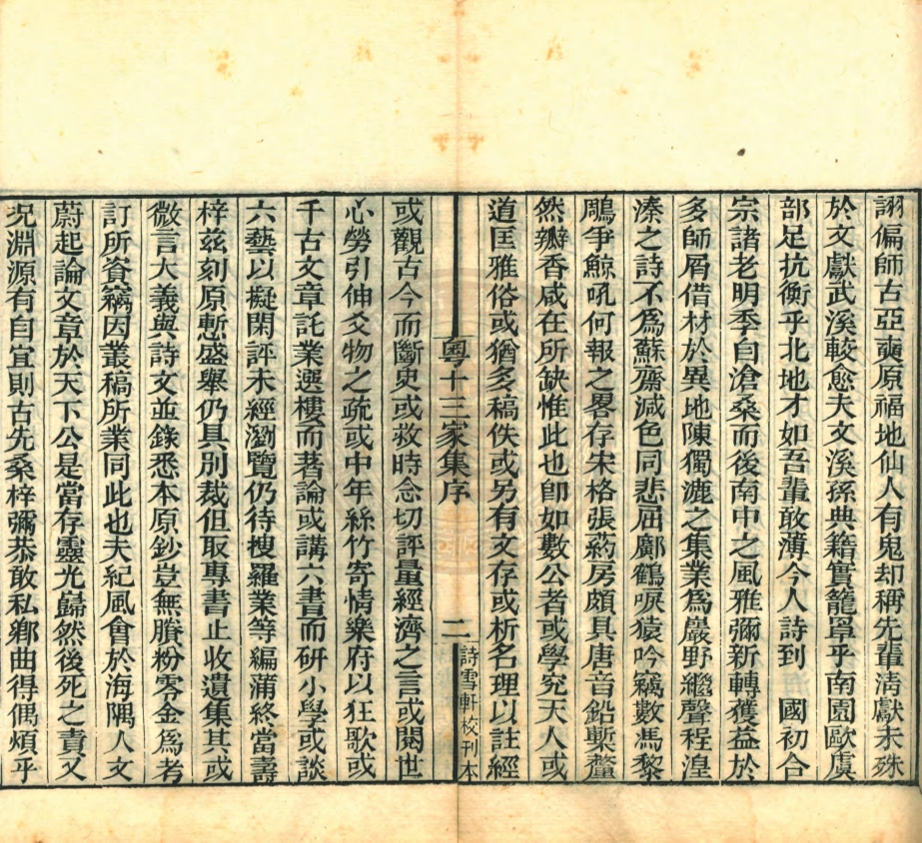 詡偏師古亞奭原福地仙人有鬼却稱先輩清獻未殊
於文獻武溪較愈夫文溪孫典籍實籠罩乎南園歐虞
部足抗衡乎北地才如吾輩敢薄今人詩到　國初合
宗諸老明季自滄桑而後南中之風雅彌新轉獲益於
多師屑借材於異地陳獨漉之集業爲嚴野繼聲程湟
溱之詩不爲蘇齋減色同悲屈鄺鶴唳猿吟竊數馮黎
鵰爭鯨吼何報之畧存宋格張葯房頗具唐音鉛槧螯
然瓣香咸在所缺惟此也卽如數公者或學究天人或
道匡雅俗或猶多稿佚或另有文存或析名理以註經
粵十三家集序　二　詩雪軒校刊本
或觀古今而斷史或救時念切評量經濟之言或閱世
心勞引伸爻物之疏或中年絲竹寄情樂府以狂歌或
千古文章託業選樓而著論或講六書而研小學或談
六藝以擬閑評未經瀏覽仍待搜羅業等編蒲終當壽
梓茲刻原慙盛舉仍具別裁但取專書止收遺集其或
微言大義與詩文並錄悉本原鈔豈無賸粉零金爲考
訂所資竊因叢稿所業同此也夫紀風會於海隅人文
蔚起論文章於天下公是當存靈光歸然後死之責又
況淵源有自宜則古先桑梓彌恭敢私鄉曲得偶煩乎